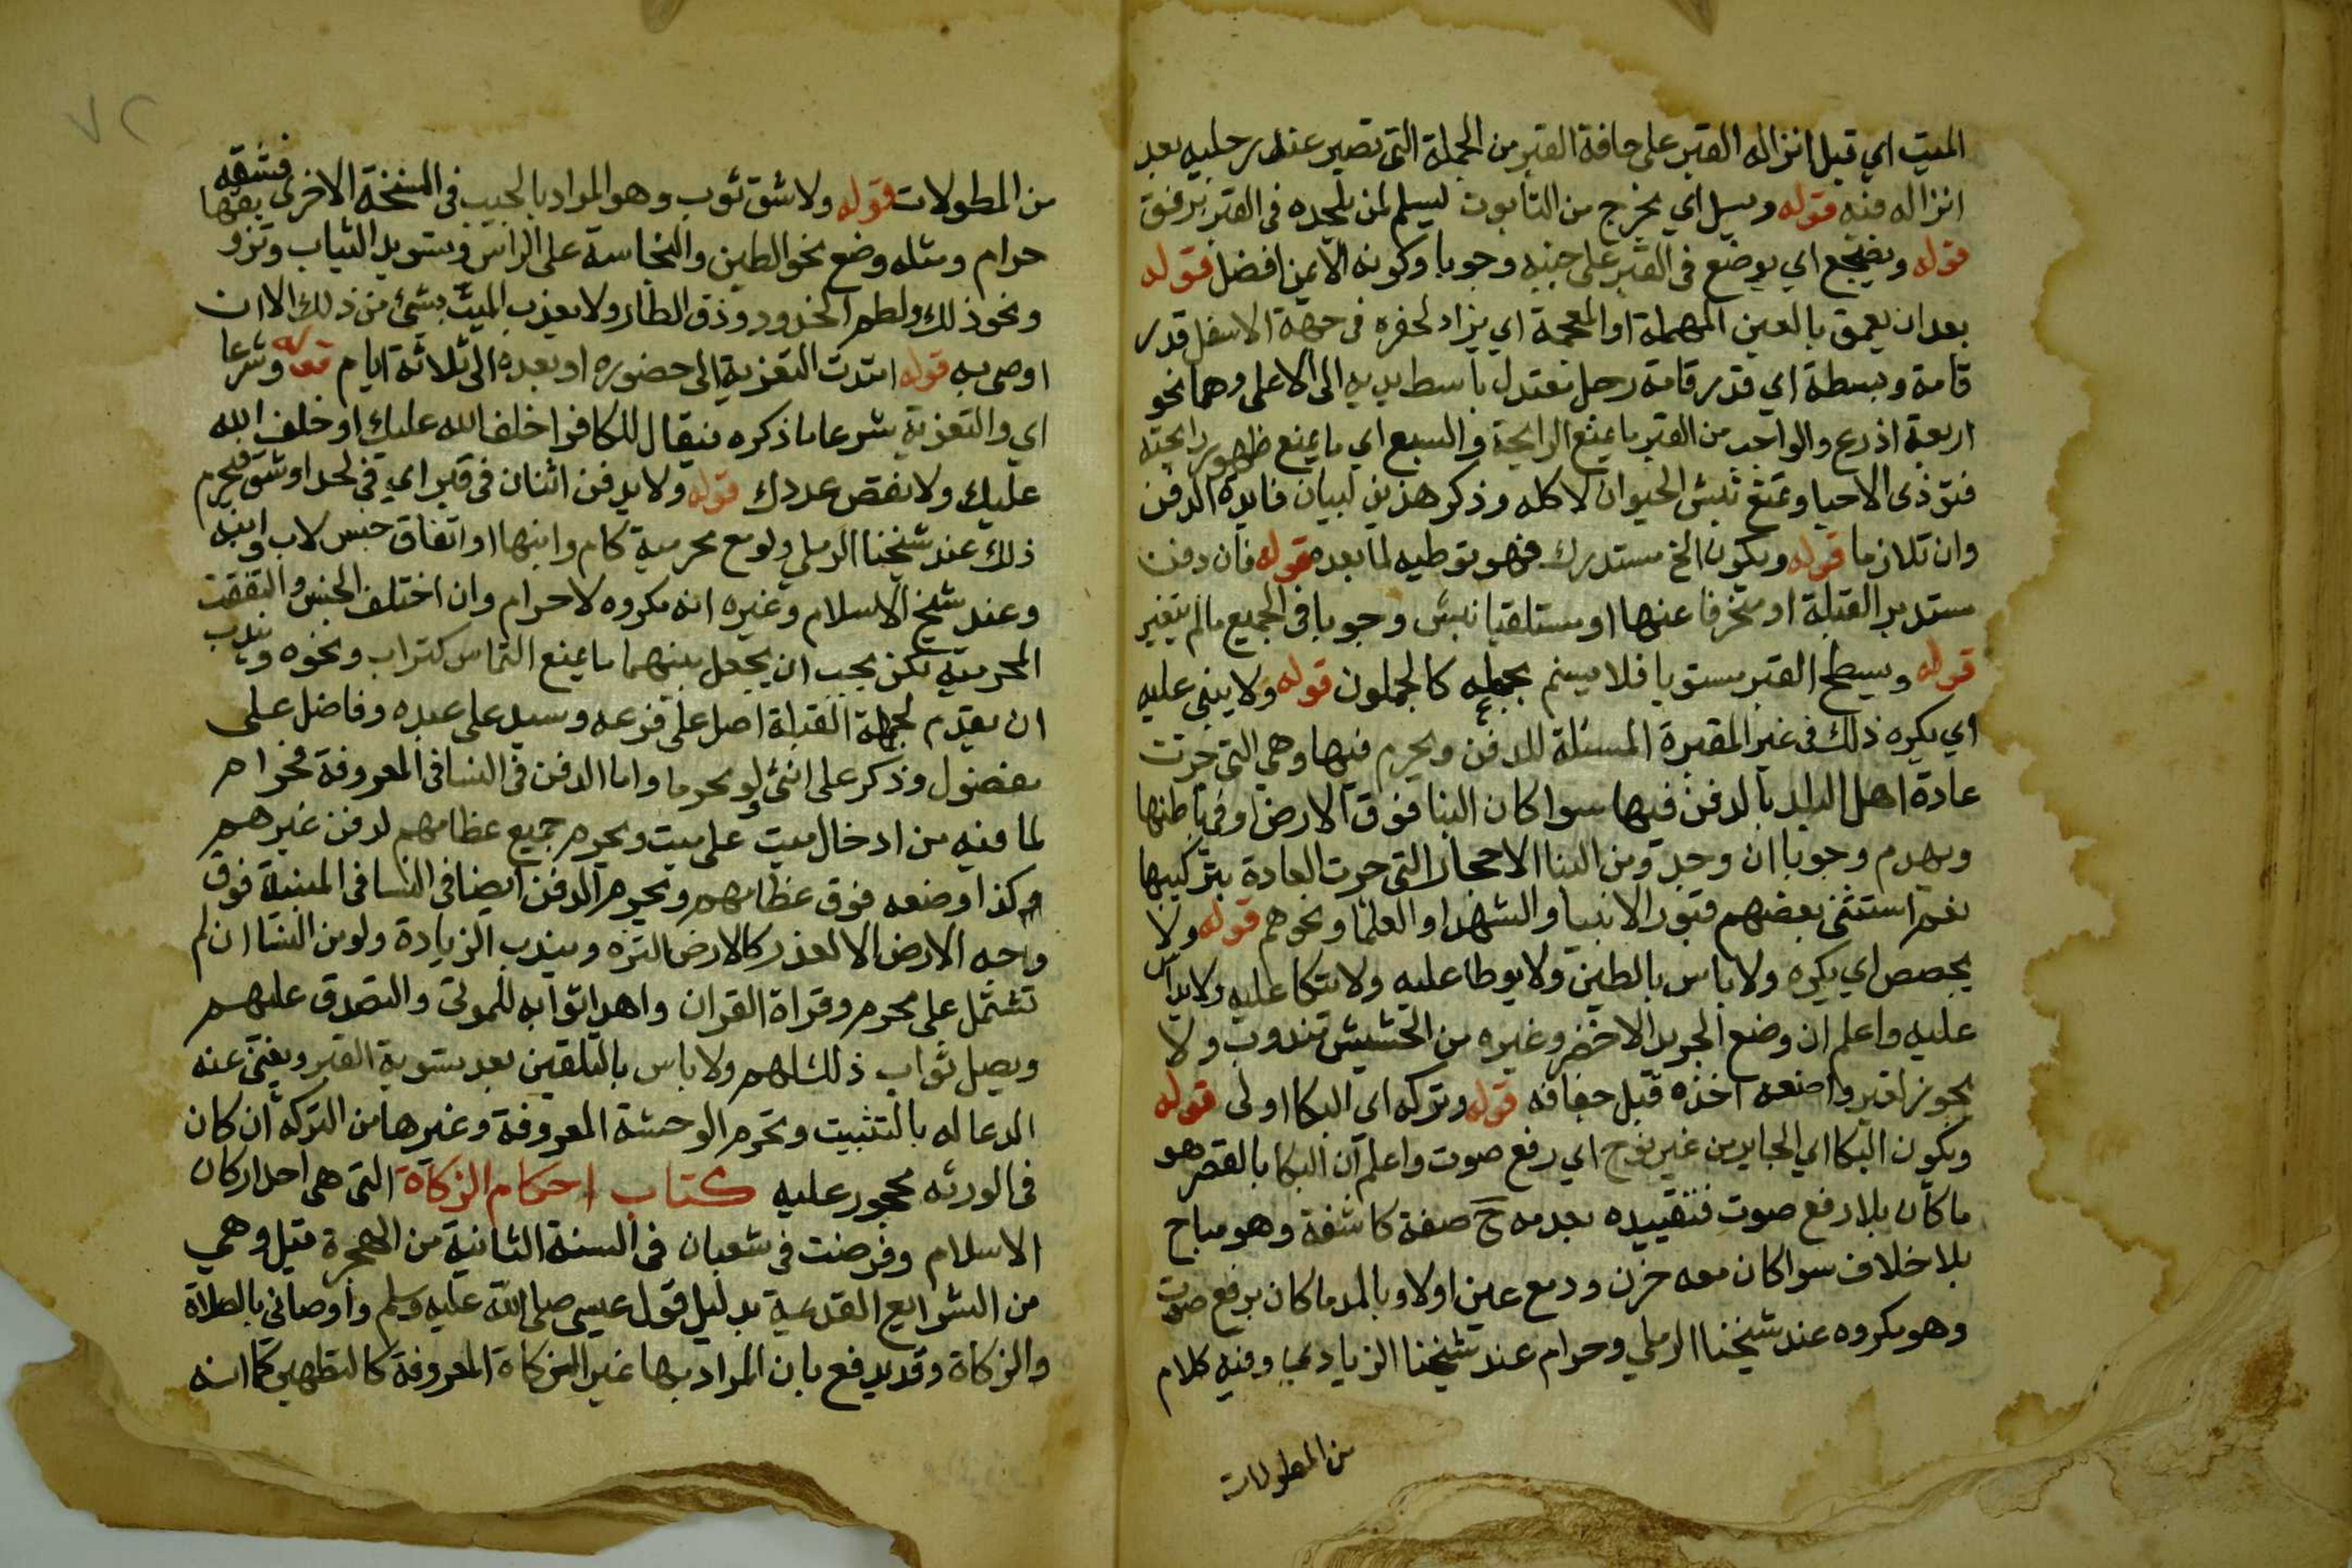 الميت اي قبل انزاله القبر على حافة القبر من الجملة التي تصير عند رجليه بعد
انزاله فيه قوله ويسل اي يخرج من التابوت ليسلم لمن يلحده في القبر برفق
قوله ويضجع اي يوضع في القبر على جنبه وجوبا وكونه الايمن افضل قوله
بعد ان يعمق بالعين المهملة او المعجمة اي يزاد لحفره في جهة الاسفل قدر
قامة وبسطة اي قدر قامة رجل معتدل باسط يديه الى الاعلى وهما نحو
اربعة اذرع والواجب من القبر ما يمنع الرايحة والسبع اي ما يمنع ظهور رايحته
فتؤذي الاحيا ويمنع نبش الحيوان لاكله وذكر هذين لبيان فايدة الدفن
وان تلازما قوله ويكون الخ مستدرك فهو توطيه لما بعده قوله فان دفن
مستدبر القبلة او منحرفا عنها او مستلقيا نبش وجوبا في الجميع مالم يتغير
قوله ويسطح القبر مستويا فلا يسنم بجعله كالجملون قوله ولا يبنى عليه
اي يكره ذلك في غير المقبرة المسبلة للدفن ويحرم فيها وهي التي جرت
عادة اهل البلد بالدفن فيها سوا كان البنا فوق الارض او في باطنها
ويهدم وجوبا ان وجد ومن البنا الاحجار التي جرت العادة بتركيبها
نعم استثنى بعضهم قبور الانبيا والشهدا والعلما ونحوهم قوله ولا
يجصص اي يكره ولا باس بالطين ولا يوطا عليه ولا يتكا عليه ولا يداس
عليه واعلم ان وضع الجريد الاخضر وغيره من الحشيش مندوب ولا
يجوز لغير واضعه اخذه قبل جفافه قوله وتركه اي البكا اولى قوله
ويكون البكا اي الجايز من غير نوح اي رفع صوت واعلم ان البكا بالقصر هو
ما كان بلا رفع صوت فتقييده بعدمه ح صفة كاشفة وهو مباح
بلا خلاف سوا كان معه حزن ودمع عين اولا وبالمد ما كان برفع صوت
وهو مكروه عند شيخنا الرملي وحرام عند شيخنا الزيادي وفيه كلام
من المطولات
٧٢
من المطولات قوله ولا شق ثوب وهو المراد بالجيب في النسخة الاخرى فشقه
حرام ومثله وضع نحو الطين والنجاسة على الراس وتسويد الثياب
ونحو ذلك ولطم الخدود ولا يعذب الميت بشئ من ذلك الا ان
اوصى به قوله امتدت التعزية الى حضوره او بعده الى ثلاثة ايام قوله وشرعا
اي والتعزية شرعا ما ذكره فيقال للكافر اخلف الله عليك او خلف الله
عليك ولا نقص عددك قوله ولا يدفن اثنان في قبر اي في لحد او شق فيحرم
ذلك عند شيخنا الرملي ولو مع محرمية كام وابنها او اتفاق جنس كاب وابنه
وعند شيخ الاسلام وغيره انه مكروه لا حرام وان اختلف الجنس وانتفت
المحرمية لكن يجب ان يجعل بينهما ما يمنع التماس كتراب ونحوه ويندب
ان يقدم لجهة القبلة اصل على فرعه وسيد على عبده وفاضل على
مفضول وذكر على انثى ولو محرما واما الدفن في الفساقي المعروفة فحرام
لما فيه من ادخال ميت على ميت ويحرم جميع عظامهم لدفن غيرهم
وكذا وضعه فوق عظامهم ويحرم الدفن ايضا في الفساقي المبنية فوق
وجه الارض الا لعذر كالارض النزه ويندب الزيادة ولو من النسا ان لم
تشتمل على محرم وقراة القران واهدا ثوابه للموتى والتصدق عليهم
ويصل ثواب ذلك لهم ولا باس بالتلقين بعد تسوية القبر ويغني عنه
الدعا له بالتثبيت وتحرم الوحشة المعروفة وغيرها من التركة ان كان
في الورثة محجور عليه كتاب احكام الزكاة التي هي احد اركان
الاسلام وفرضت في شعبان في السنة الثانية من الهجرة قيل وهي
من الشرايع القديمة بدليل قول عيسى صلى الله عليه وسلم واوصاني بالصلاة
والزكاة وقد يدفع بان المراد بها غير الزكاة المعروفة كالتطهير كما انه